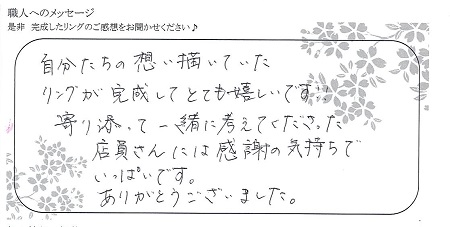 職人へのメッセージ
是非 完成したリングのご感想をお聞かせください♪
自分たちの想い描いていた
リングが完成してとても嬉しいです!!
寄り添って一緒に考えてくださった
店員さんには感謝の気持ちで
いっぱいです。
ありがとうございました。